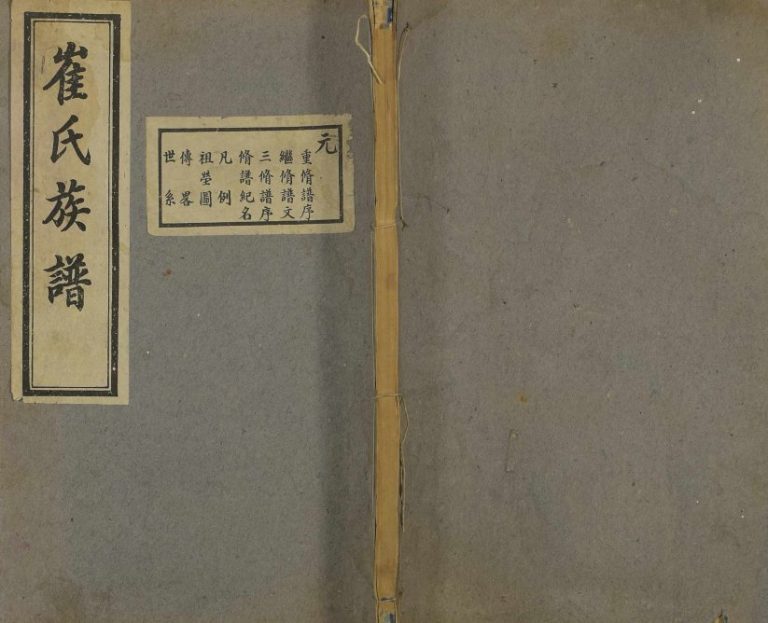 崔氏族譜
元
重脩譜序
繼脩譜文
三脩譜序
脩譜紀名
凡例
祖塋圖
傳畧
世系